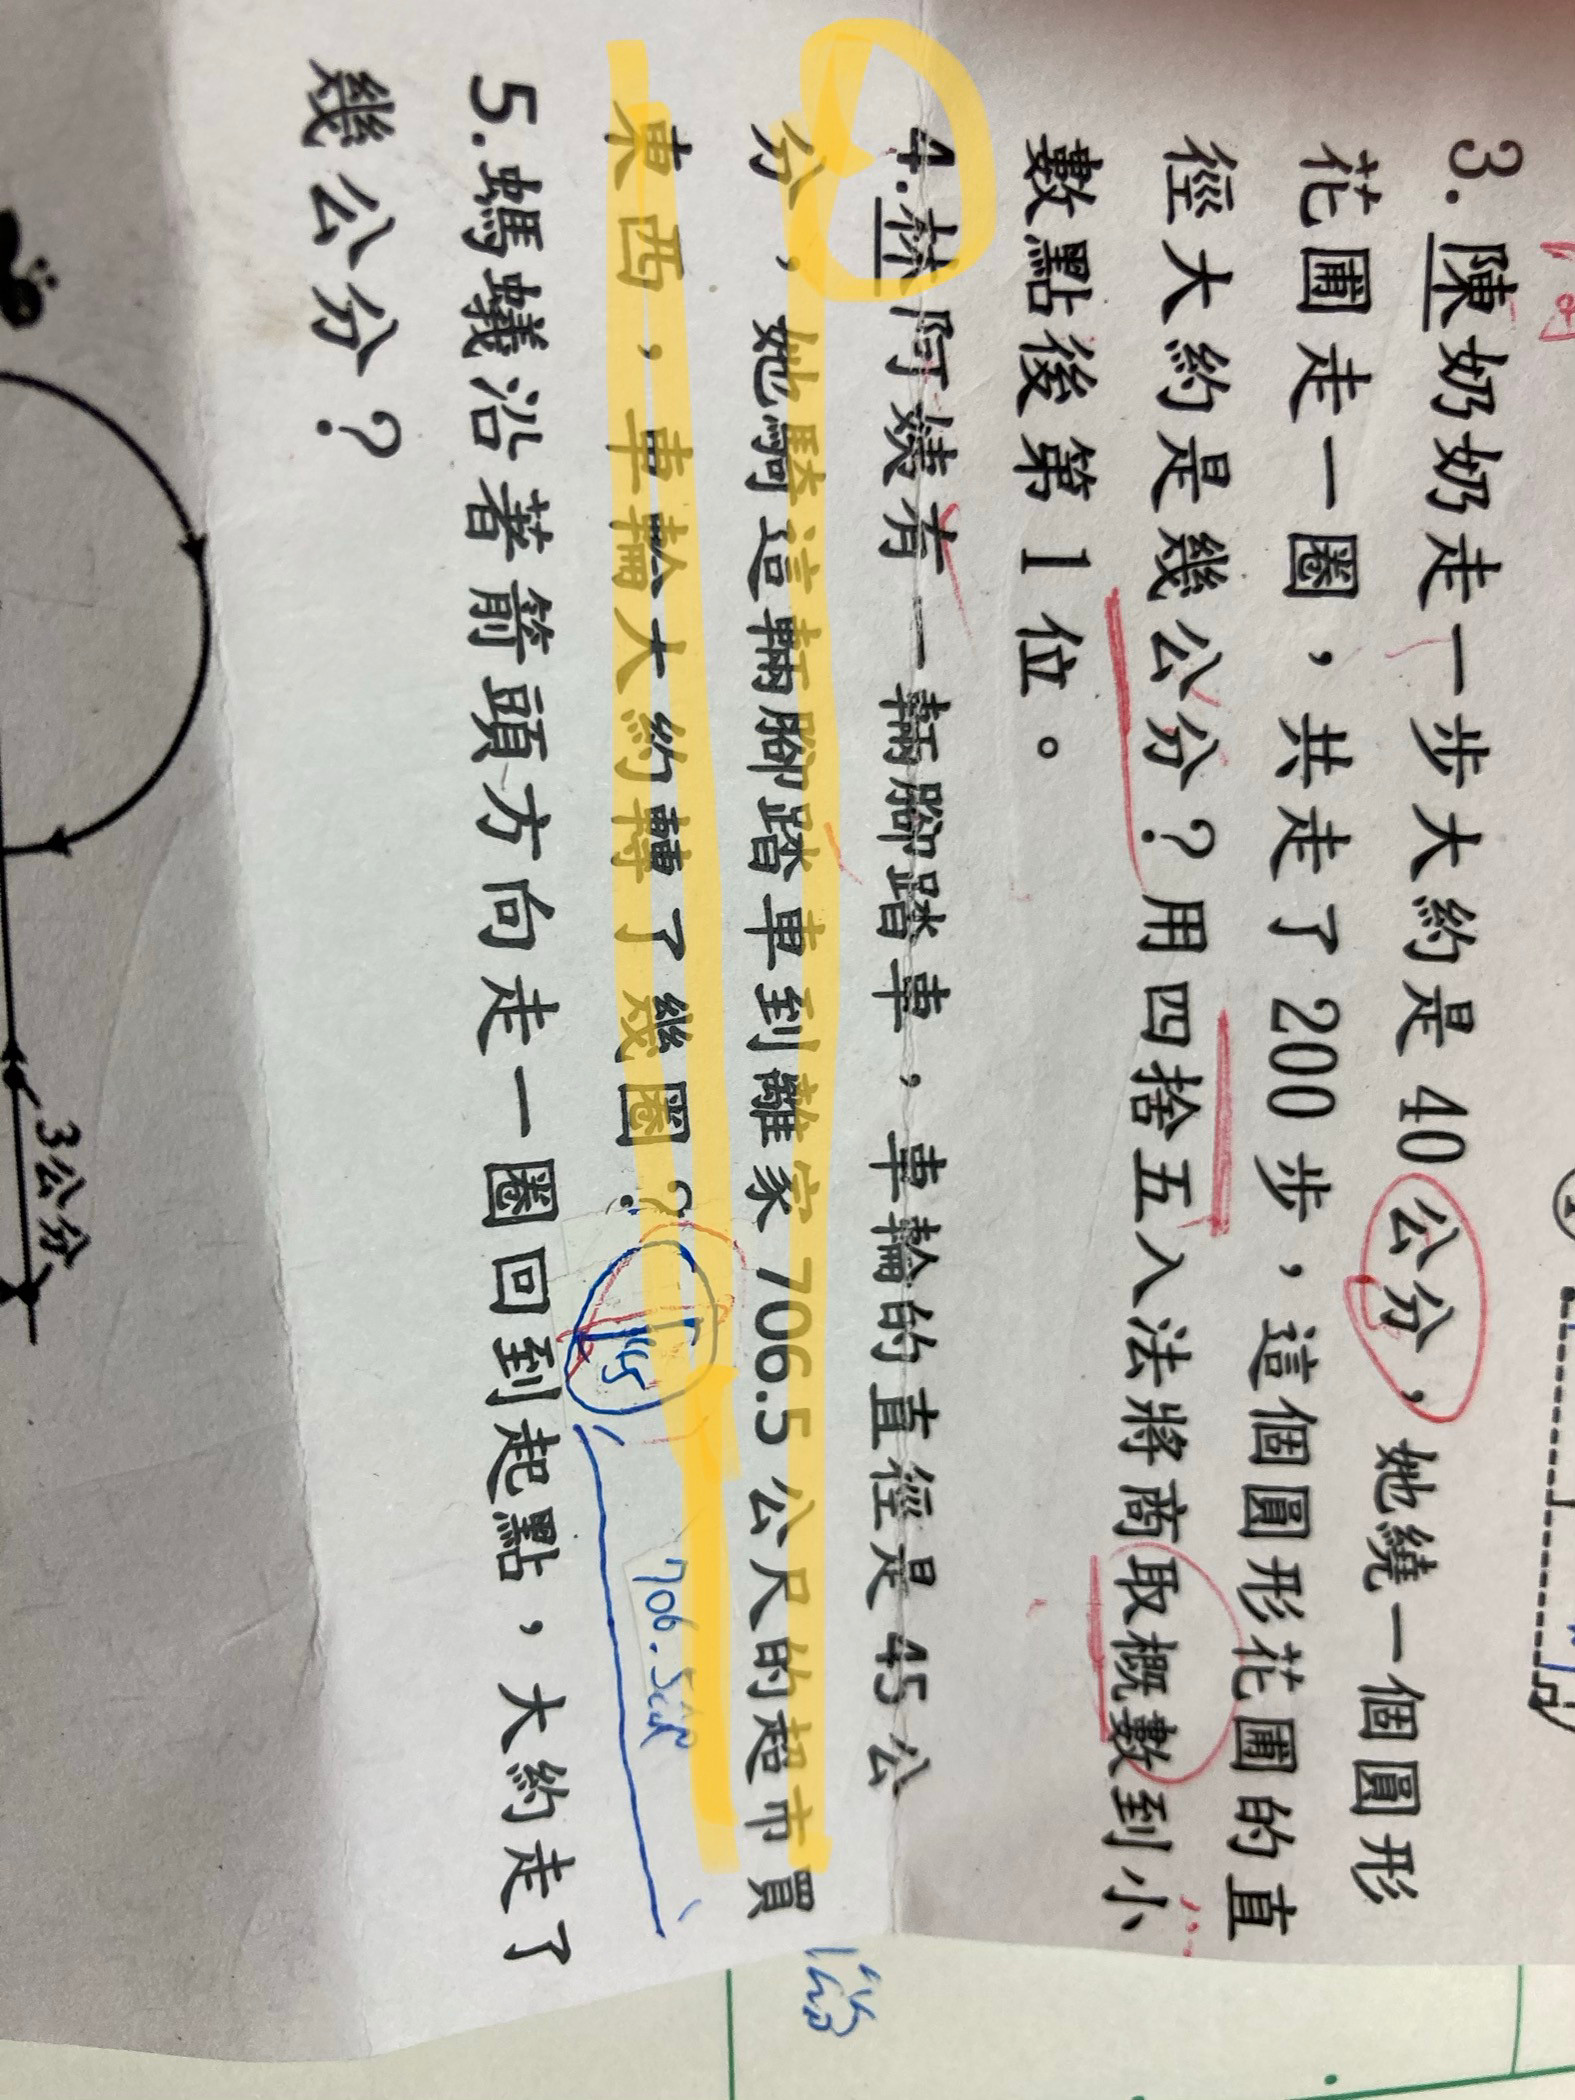 3.陳奶奶走一步大約是 40 公分，她繞一個圓形
花圃走一圈，共走了 200 步，這個圓形花圃的直
徑大約是幾公分？用四捨五入法將商取概數到小
數點後第 1 位。
4.林阿姨有一輛腳踏車，車輪的直徑是 45 公
分，她騎這輛腳踏車到離家 706.5 公尺的超市買
東西，車輪大約轉了幾圈？
45
706.5
5.螞蟻沿著箭頭方向走一圈回到起點，大約走了
幾公分？
3公分